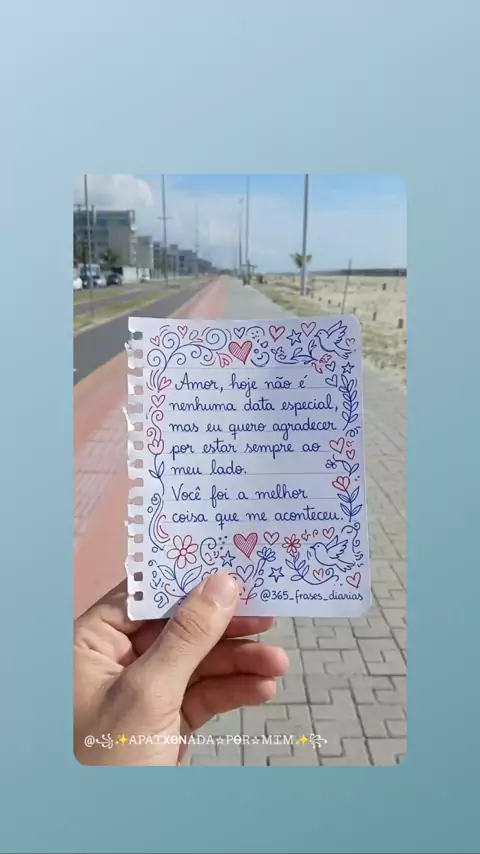 Amor, hoje não é
nenhuma data especial,
mas eu quero agradecer
por estar sempre ao
meu lado.
Você foi a melhor
coisa que me aconteceu.
@365_frases_diarias
@꧁✨A̶P̶A̶I̶X̶O̶N̶A̶D̶A̶☆P̶O̶R̶☆M̶I̶M̶✨꧂